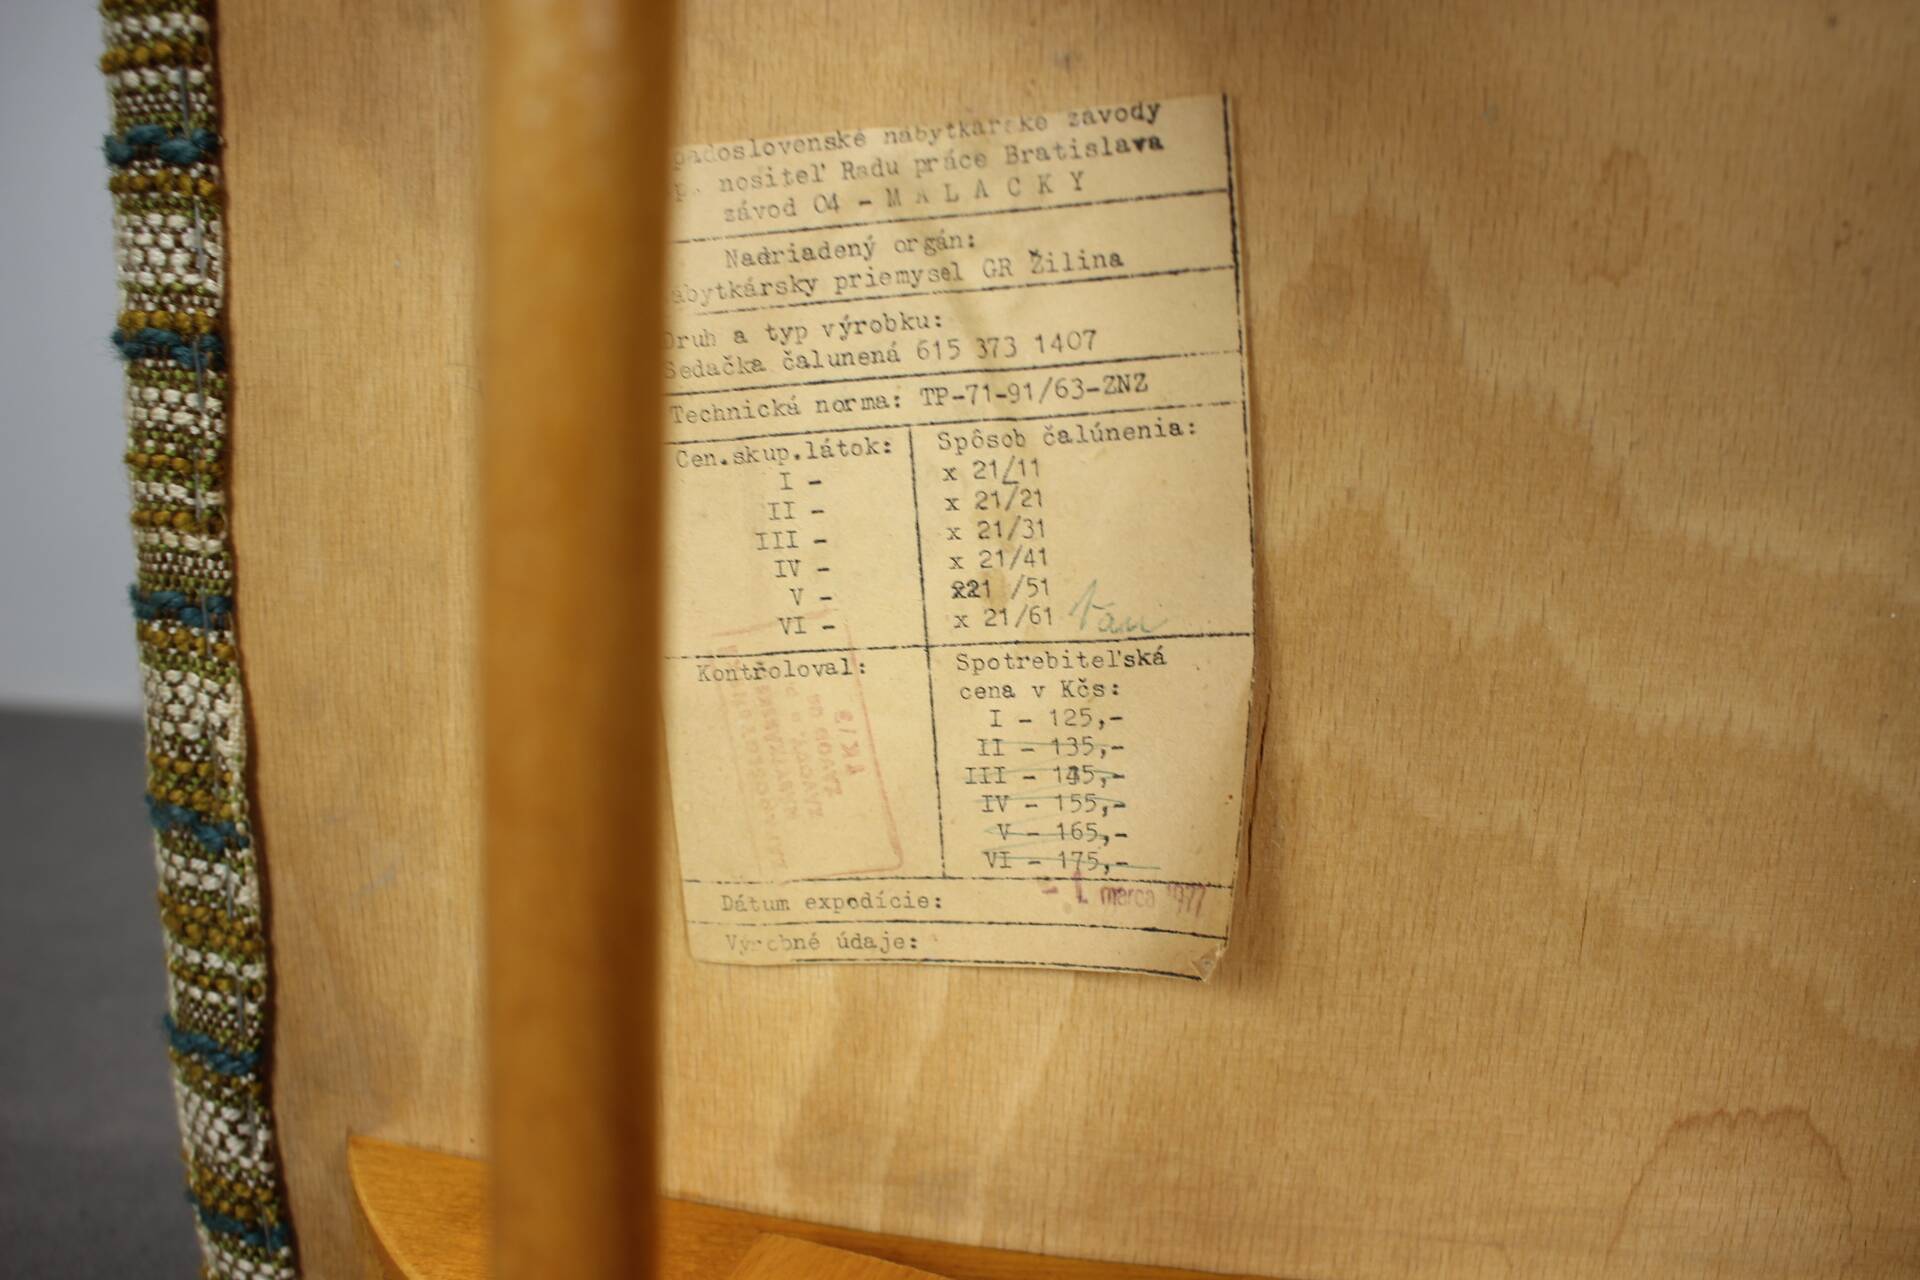 padoslovenské nábytkárske závody
p. nositeľ Radu práce Bratislava
závod 04 - M A L A C K Y
Nadriadený orgán:
ábytkársky priemysel GR Žilina
Druh a typ výrobku:
Sedačka čalunená 615 373 1407
Technická norma: TP-71-91/63-ZNZ
Cen.skup.látok:
I -
II -
III -
IV -
V -
VI -
Spôsob čalúnenia:
x 21/11
x 21/21
x 21/31
x 21/41
x21 /51
x 21/61
Kontroloval:
Spotrebiteľská
cena v Kčs:
I - 125,-
II - 135,-
III - 145,-
IV - 155,-
V - 165,-
VI - 175,-
Dátum expedície: - 1. marca 1977
Výrobné údaje: